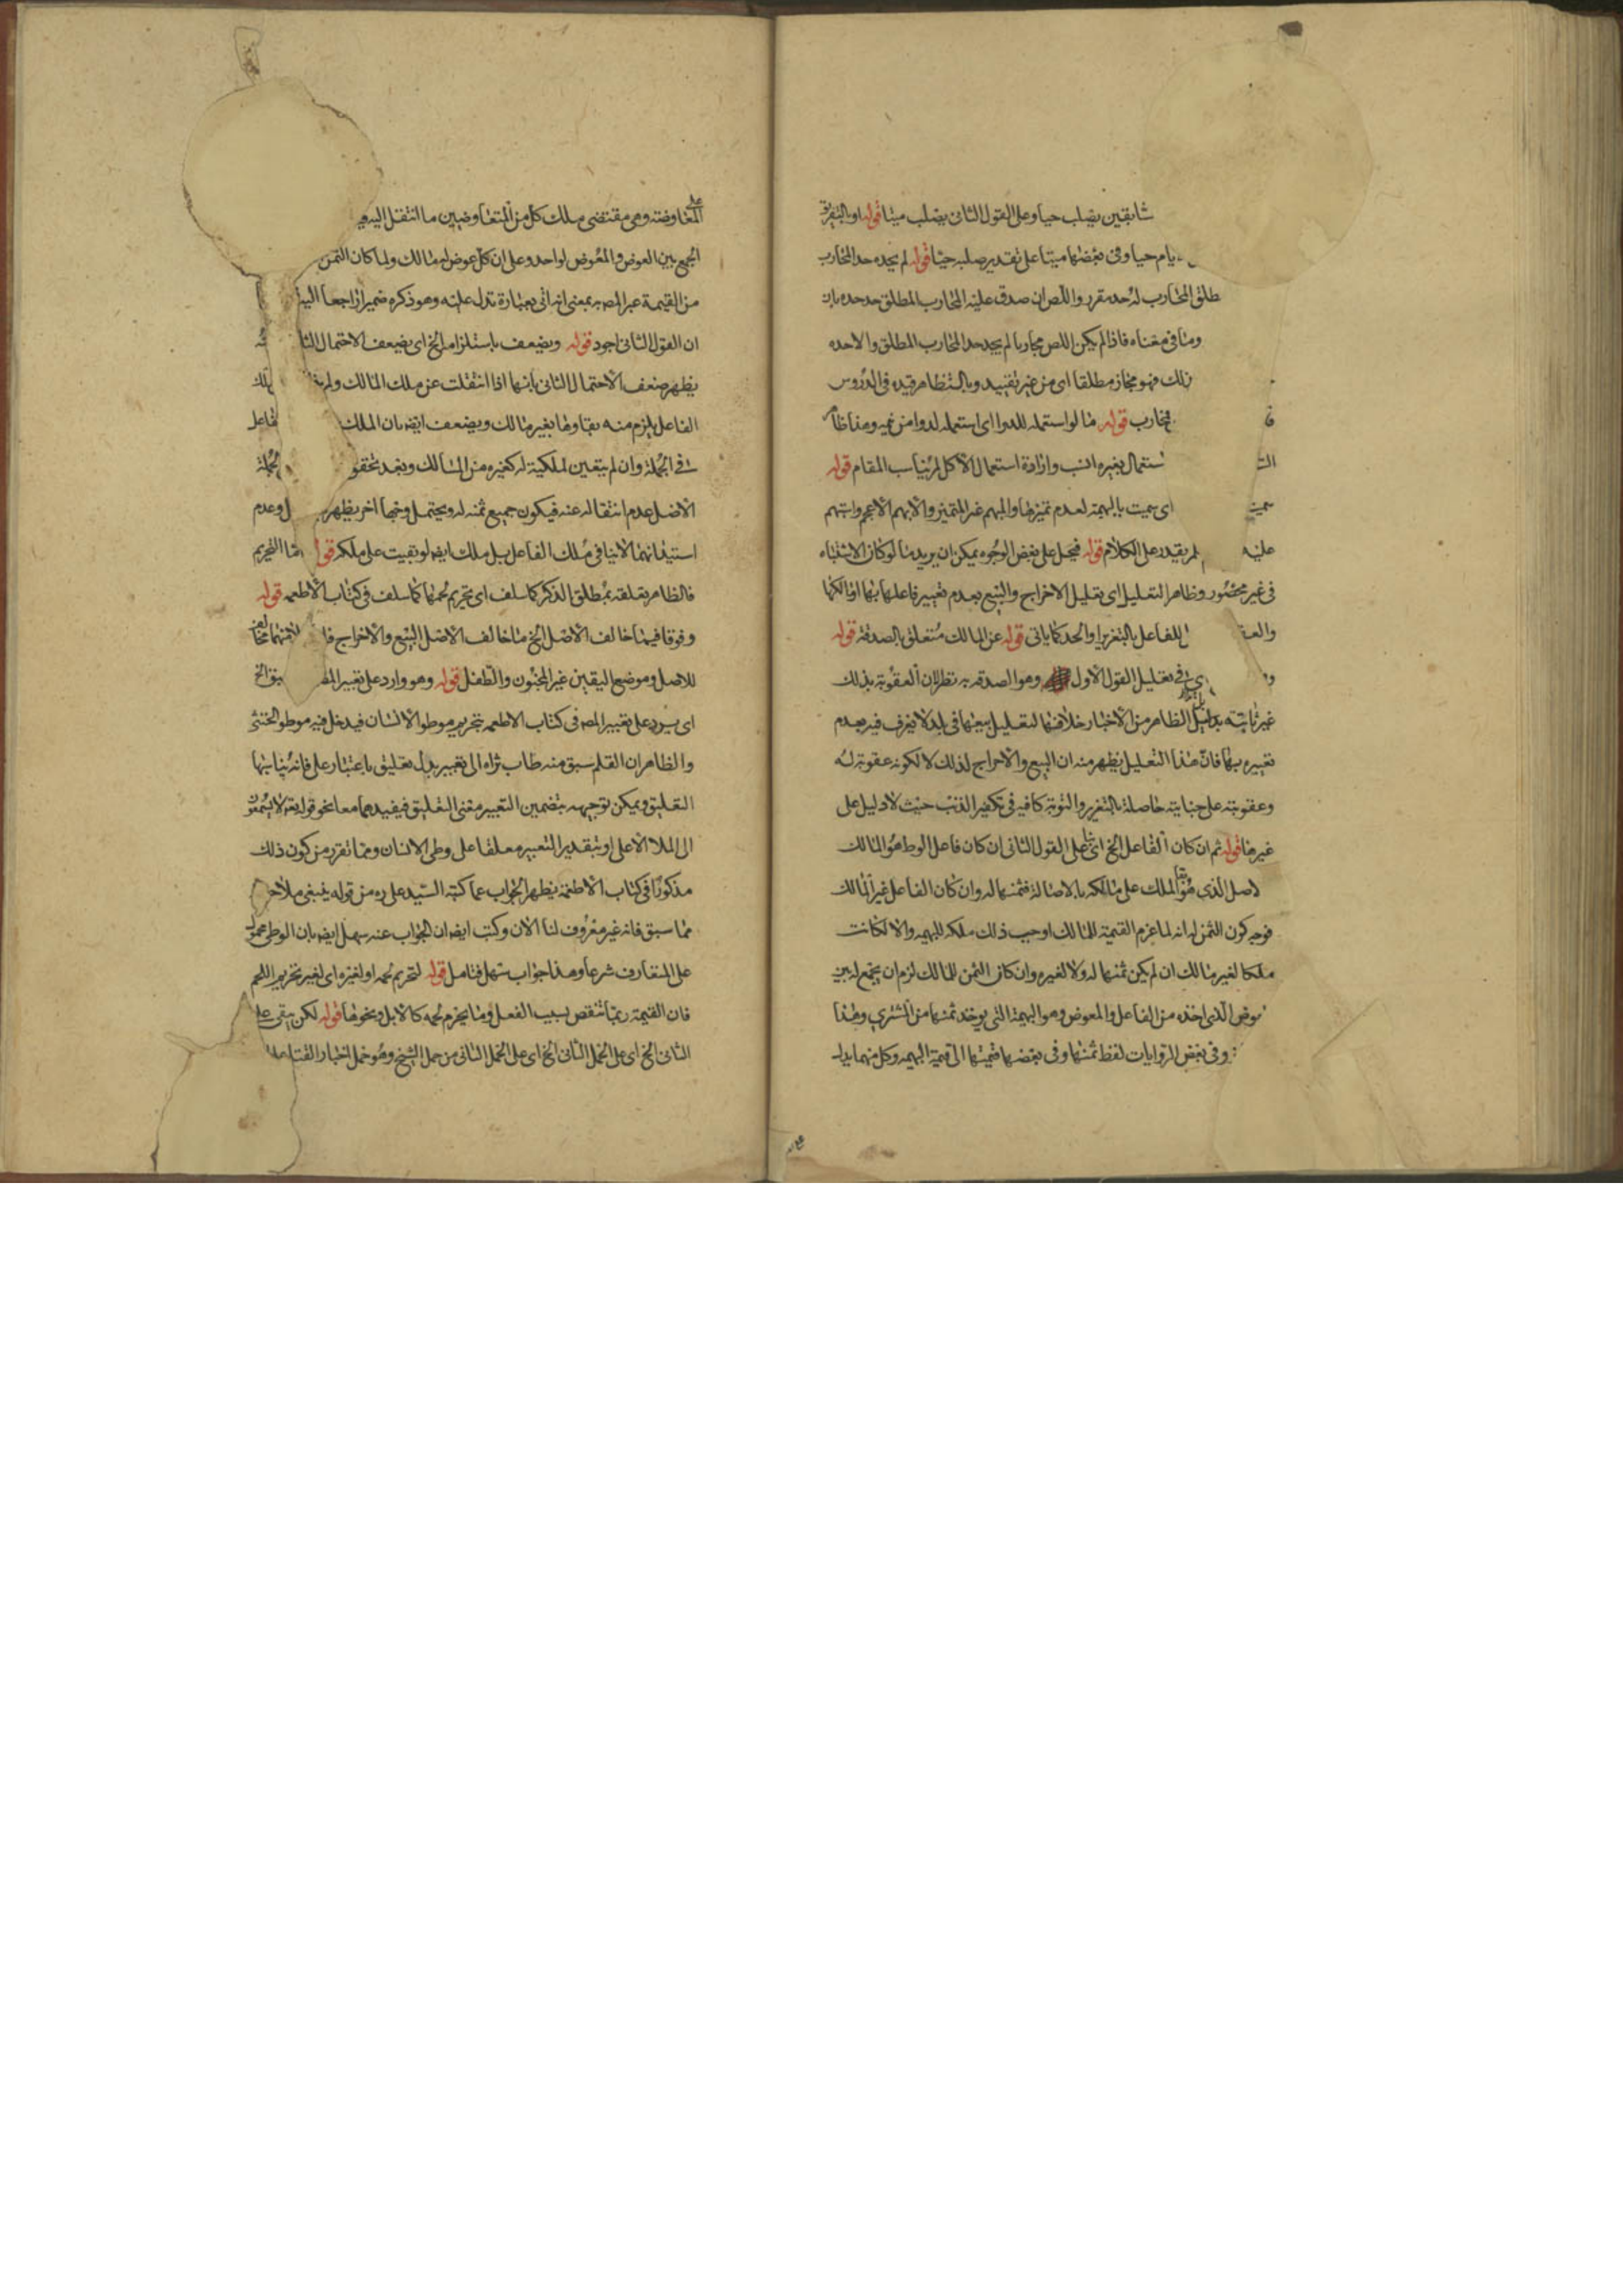 سابقين يصلب حيا وعلى القول الثانى يصلب ميتا قوله او بالتفريق
ايام حيا وفى بعضها ميتا على تقدير صلبه حيا قوله لم يحده حد المحارب
طلق المحارب له حد مقرر واللص ان صدق عليه المحارب المطلق حد حده بان
وما فى معناه فاذا لم يكن اللص محاربا لم يحد حد المحارب المطلق والا حده
ذلك فهو مجاز مطلقا اى من غير تقييد وبالتظاهر قيده فى الدروس
محارب قوله ما لو استمله للدوا اى استمله لدوا من غيره وهذا ظا
استعمال بغيره انسب وارادة استعمال الاكل لا يناسب المقام قوله
سميت اى سميت بالبهيمة لعدم تميزها والمبهم غير المتميز والابهم الاعجم واستبهم
عليه لم يقدر على الكلام قوله فيحمل على بعض الوجوه يمكن ان يريد ما لو كان الاشتباه
فى غير محصور وظاهر التعليل اى تعليل الاخراج والبيع بعدم تعيير فاعلها بها او مالكها
والعـ للفاعل بالتعزير او الحد كما ياتى قوله عن المالك متعلق بالصدقة قوله
فى تعليل القول الاول وهو الصدقة به نظر لان العقوبة بذلك
غير ثابتة بدليل الظاهر من الاخبار خلافها لتعليل بيعها فى بلد لا يعرف فيه بعدم
تعييره بها فان هذا التعليل يظهر منه ان البيع والاخراج لذلك لا لكونه عقوبة له
وعقوبته على جنايته حاصلة بالتعزير والتوبة كافية فى تكفير الذنب حيث لا دليل على
غيرها قوله ثم ان كان الفاعل الخ اى على القول الثانى ان كان فاعل الوطء هو المالك
لاصل الذى هو بقا الملك على مالكه بالاصالة فثمنها له وان كان الفاعل غير المالك
فوجه كون الثمن له انه لما غرم القيمة للمالك اوجب ذلك ملكه للبهيمه والا لكانت
ملكا لغير مالك ان لم يكن ثمنها له ولا لغيره وان كان الثمن للمالك لزم ان يجتمع له بين
العوض الذى اخذه من الفاعل والمعوض وهو البهيمة التى يوخذ ثمنها من المشترى وهذا
وفى بعض الروايات لفظ ثمنها وفى بعضها قيمتها اى قيمة البهيمه وكل منهما يدل
على المعاوضة وهى مقتضى ملك كل من المتعاوضين ما انتقل اليه
الجمع بين العوض والمعوض لواحد وعلى ان كل عوض له مالك ولما كان الثمن
من القيمة عبر المصـ به بمعنى انه اتى بعبارة تدل عليه وهو ذكره ضميرا راجعا اليه
ان القول الثانى اجود قوله ويضعف باستلزامه الخ اى يضعف الاحتمال الثا
يظهر ضعف الاحتمال الثانى بانها اذا انتقلت عن ملك المالك ولم
الفاعل يلزم منه بقاوها بغير مالك ويضعف ايضا بان الملك
فى الجملة وان لم يتعين لملكيته له كغيره من المسالك وبعد تحقق
الاصل عدم انتقاله عنه فيكون جميع ثمنه له ويحتمل وجها اخر يظهر
فى ملك الفاعل بل ملك ايضا لو بقيت على ملكه قوله اما التحريم
فالظاهر تعلقه بمطلق الذكر كما سلف اى تحريم لحمها كما سلف فى كتاب الاطعمه قوله
وقوفا فيما خالف الاصل الخ ما خالف الاصل البيع والاخراج
للاصل وموضع اليقين غير المجنون والطفل قوله وهو وارد على تعبير
اى يرد على تعبير المصـ فى كتاب الاطعمه بتحريم موطو الانسان فيدخل فيه موطو الخنثى
والظاهر ان القلم سبق منه طاب ثراه الى تعبير بدل تعليق باعتبار على فانه يناسبها
التعليق ويمكن توجيهه بتضمين التعبير معنى التعليق فيفيدهما معا نحو قوله تعالى لا يسمعون
الى الملا الاعلى او بتقدير التعبير معلقا على وطى الانسان ومما تقرر من كون ذلك
مذكورا فى كتاب الاطعمة يظهر الجواب عما كتبه السيد على ره من قوله ينبغى ملاحـ
مما سبق فانه غير معروف لنا الان وكتب ايضا ان الجواب عنه سهل ايضا بان الوطى محمول
على المتعارف شرعا وهذا جواب سهل فتامل قوله لتحريم لحمه او لغيره اى لغير تحريم اللحم
فان القيمة ربما تنقص بسبب الفعل وما يحرم لحمه كالابل ونحوها قوله لكن يبقى على
الثانى الخ اى على الحمل الثانى الخ اى على الحمل الثانى من حمل الشيخ وهو حمل اخبار القتل